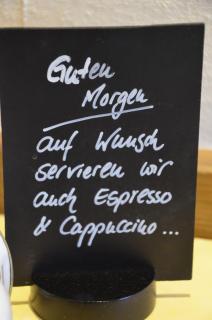 Guten
Morgen
auf Wunsch
servieren wir
auch Espresso
& Cappuccino ...